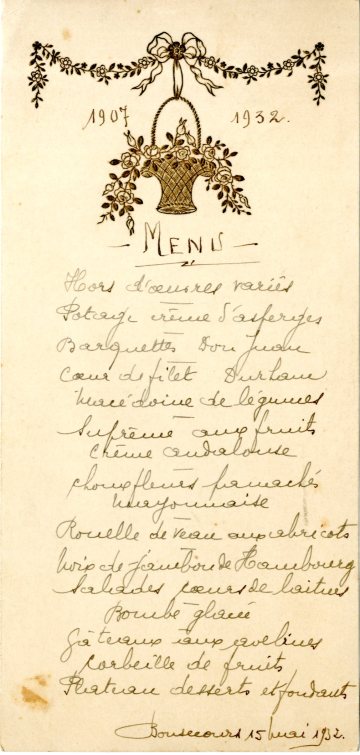 1907 1932.
- MENU -
Hors d'œuvres variés
Potage crème d'asperges
Barquettes Don Juan
Cœur de filet Durham
Macédoine de légumes
Suprême aux fruits
Crème andalouse
Chouxfleurs panachés
mayonnaise
Rouelle de veau aux abricots
Noix de jambon de Hambourg
Salades cœurs de laitues
Bombe glacée
Gâteaux aux avelines
Corbeille de fruits
Plateau desserts et fondants
Bonsecours 15 mai 1932.